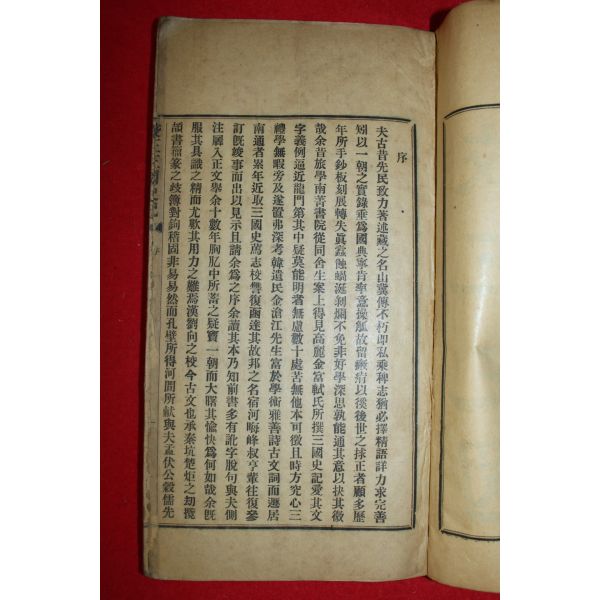 序
夫古昔先民致力著述藏之名山冀傳不朽即私乘稗志猶必擇精語詳力求完善
矧以一朝之實錄垂爲國典寧肯率意操觚故留癥痏以俟後世之捄正者顧多歷
年所手鈔板刻展轉失眞蠧蝕蝸涎剝爛不免非好學深思孰能通其意以抉其微
哉余昔旅學南菁書院從同舍生案上得見高麗金富軾氏所撰三國史記愛其文
字義例逼近龍門第其中疑莫能明者無慮數十處苦無他本可徵且時方究心三
禮學無暇旁及遂置弗深考韓遺民金滄江先生富於學術雅善詩古文詞而遯居
南通者累年近取三國史蒿志校讐復函達其故邦之名宿河晦峰叔亨輩往復參
訂旣竣事而出以見示且請余爲之序余讀其本乃知前書多有訛字脫句與夫側
注羼入正文舉余十數年胸肊中所蓄之疑竇一朝而大曙其愉快爲何如哉余旣
服其具識之精而尤歎其用力之難焉漢劉向之校今古文也承秦坑楚炬之劫攬
頡書籀篆之歧簿對鉤稽固非易易然而孔壁所得河間所献與夫孟伏公穀儒先